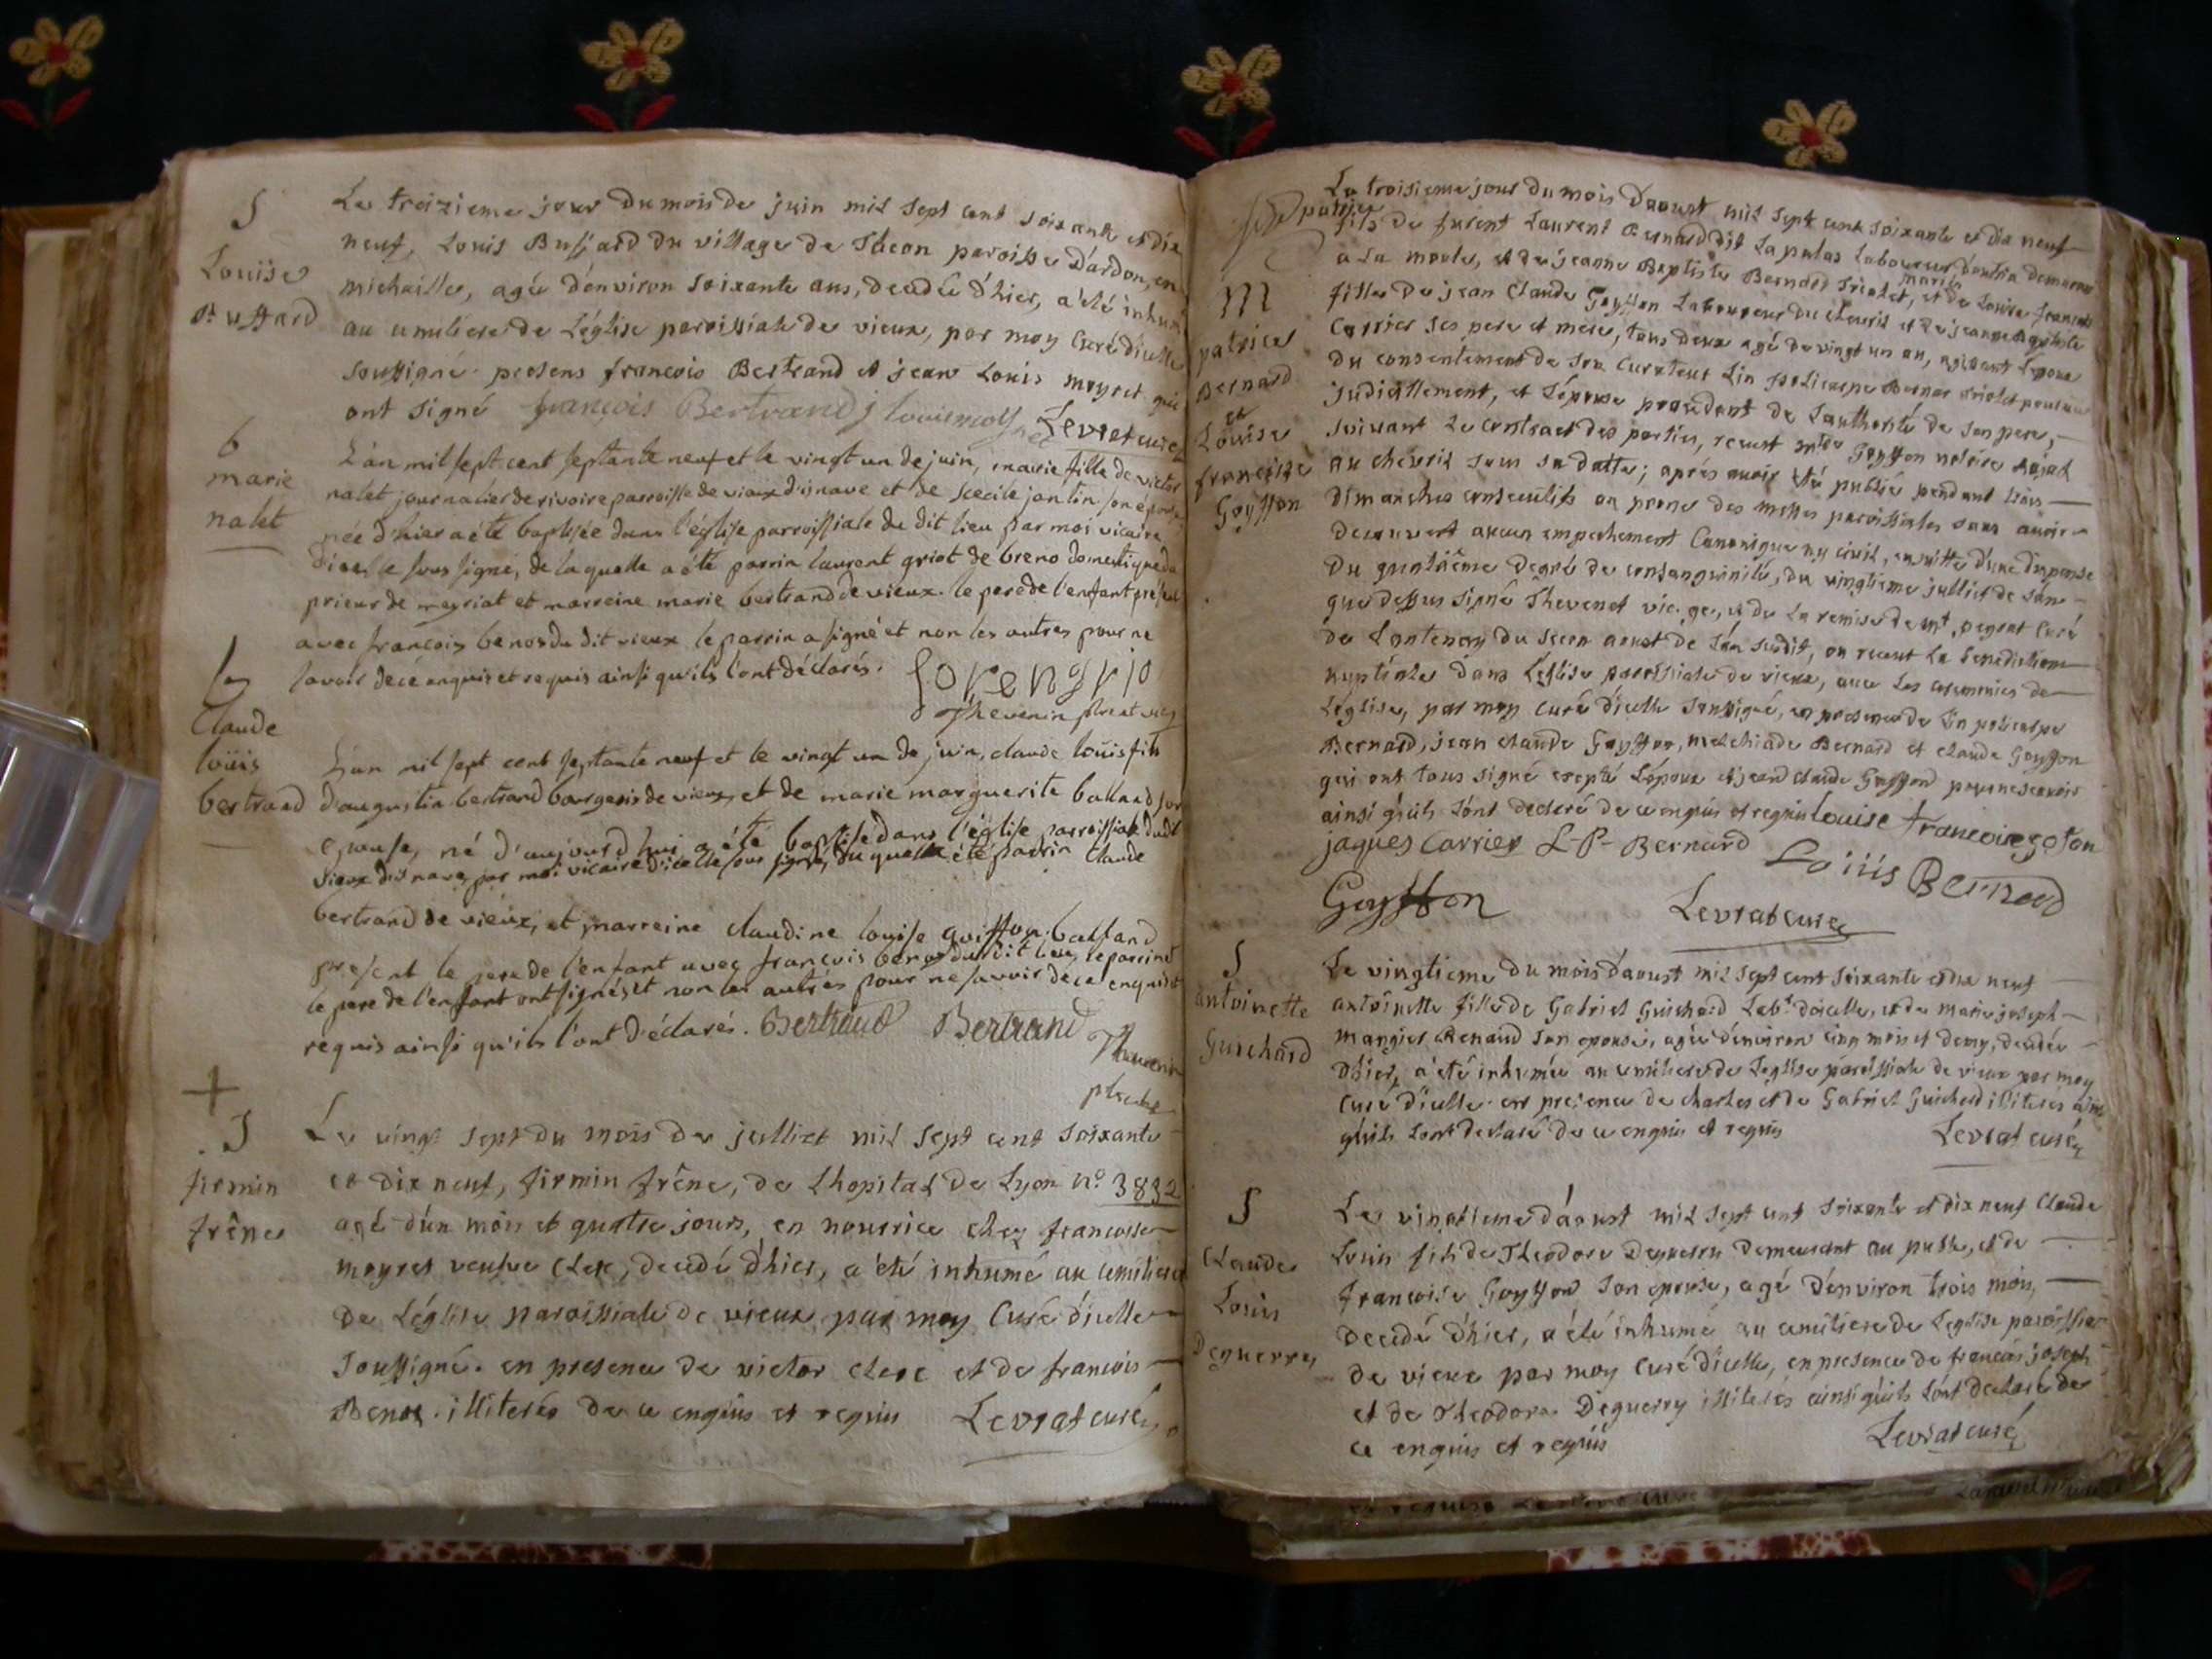 S
Louise
Buffard
Le treizieme jour du mois de juin mil sept cent soixante et dix
neuf, Louis Buffard du village de Ocheon paroisse D'ardon, en
michaille, agé d'environ soixante ans, decedé d'hier, a été inhumé
au cimetiere de L'église paroissiale de vieux, par moy Curé d'icelle
soussigné presens francois Bertrand et jean Louis moyret qui
ont signé françois Bertrand j louis moyret Levrat curé
b
marie
nalet
L'an mil sept cent septante neuf et le vingt un de juin, marie fille de victor
nalet journalier de rivoire parroisse de vieux d'isnave et de Cecile jantin son épouse
née d'hier a été baptisée dans l'église parroissiale du dit lieu par moi vicaire
d'icelle sous signé, de laquelle a été parrin laurent griot de breno domestique du
prieur de meyriat et marreine marie bertrand de vieux. le pere de l'enfant présent
avec françois benos du dit vieux le parrin a signé et non les autres pour ne
savoir de cé enquis et requis ainsi qu'ils l'ont déclarés.
Thevenin ptre et vic
b
Claude
loüis
bertrand
L'an mil sept cent septante neuf et le vingt un de juin, claude loüis fils
d'augustin bertrand bourgeois de vieux, et de marie marguerite balland son
epouse, né d'aujourd'hui a été baptisé dans l'église parroissiale dudit
vieux d'isnave, par moi vicaire d'icelle sous signé, duquel a été parrin Claude
bertrand de vieux, et marreine claudine louise goiffon balland
présent le pere de l'enfant avec françois benos dudit lieu, le parrin et
le pere de l'enfant ont signés et non les autres pour ne savoir de ce enquis et
requis ainsi qu'ils l'ont déclarés. Bertrand Bertrand Thevenin
ptre et vic
S
firmin
frêne
Le vingt sept du mois de julliet mil sept cent soixante
et dix neuf, firmin frêne, de Lhopital de Lyon n° 3832
agé d'un mois et quatre jours, en nourrice chez francoise
moyret veufve Clerc, decedé d'hier, a été inhumé au cimitiere
de L'église paroissiale de vieux par moy Curé d'icelle
soussigné. en presence de victor clerc et de francois
Benos. illiterés de ce enquis et requis Levrat curé
M
patrice
Bernard
et
Louise
françoise
Goyffon
Le troisieme jour du mois D'aoust mil sept cent soixante et dix neuf
patrice
fils de furent Laurent Bernard dit La palas Laboureur
à La
et de jeanne Baptiste Bernard
mariés
et de Louise francoise
fille de jean Claude Goyffon Laboureur du chevril et de jeanne Baptiste
Carrier ses pere et mere, tous deux agé de vingt un an, agissant L'epoux
du consentement de son Curateur
judiciellement, et L'épouse procedant de L'authorité de son pere,
suivant Le contract des parties, receut Goyffon notaire Royal
au chévril sous sa datte; aprés avoir été publié pendant trois
dimanches consecutifs au prone des messes paroissiales sans avoir
decouvert aucun empechement Canonique ny civil, ensuitte d'une dispense
du quatriême degré de consanguinité, du vingtieme julliet de L'an
que dessus signé Thevenet vic. ge., et de La remise de mr. curé
de Lantenay du aoust de L'an susdit, on receut La benediction
nuptiale dans L'église paroissiale de vieux, avec les ceremonies de
L'église, par moy curé d'icelle soussigné, en presence de
Bernard, jean claude Goyffon, melchiade Bernard et claude Goyffon
qui ont tous signé excepté L'époux et jean claude Goyffon pour ne sçavoir
ainsi qu'ils L'ont declaré de ce enquis et requis Louise francoise gofon
jaques Carrier L-P- Bernard Loüis Bernard
Goyffon Levrat curé
S
antoinette
Guichard
Le vingtieme du mois d'aoust mil sept cent soixante et dix neuf
antoinette fille de Gabriel Guichard Labr. d'icelle, et de marie joseph
mangier Renaud son epouse, agée d'environ cinq mois et demy, decedée
d'hier, a été inhumée au cimitiere de L'eglise paroissiale de vieux par moy
Curé d'icelle en presence de charles et de Gabriel Guichard illiterés ainsi
qu'ils L'ont declaré de ce enquis et requis Levrat curé
S
Claude
Louis
Deguerry
Le vingtieme d'aoust mil sept cent soixante et dix neuf Claude
Louis fils de Theodore Deguerry demeurant au et de
francoise Goyffon son epouse, agé d'environ trois mois,
decedé d'hier, a été inhumé au cimitiere de L'eglise paroissiale
de vieux par moy curé d'icelle, en presence de francois joseph
et de Theodore Deguerry illiterés ainsi qu'ils L'ont declaré de
ce enquis et requis Levrat curé